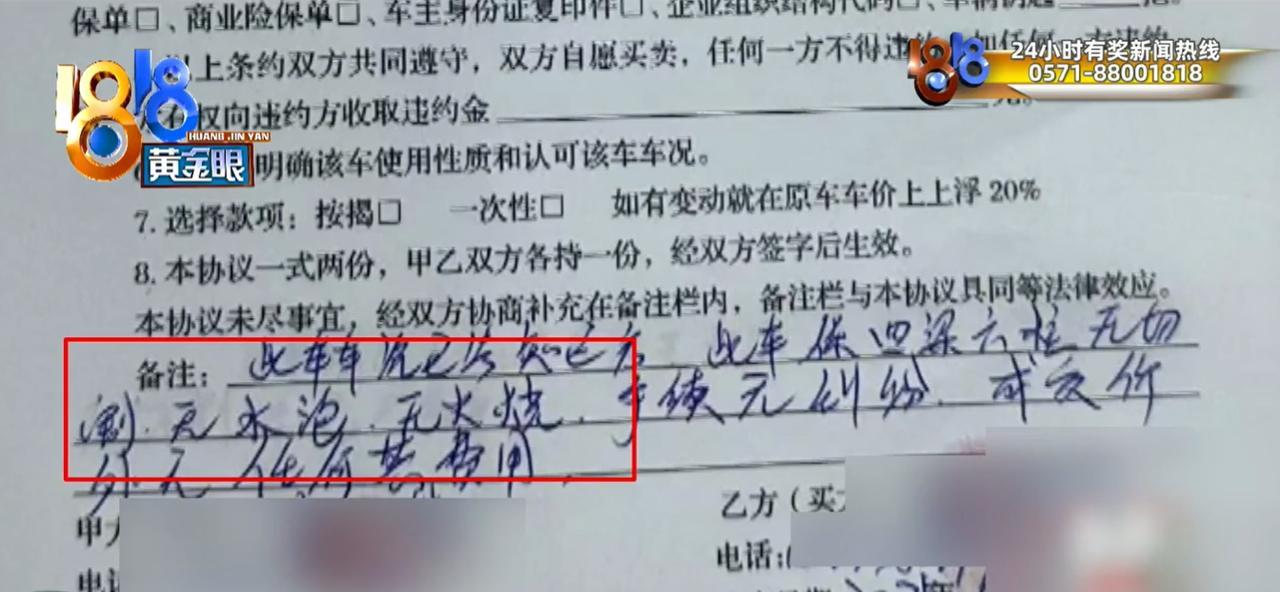 保单□、商业险保单□、车主身份证复印件□、企业组织结构代码□、
以上条约双方共同遵守，双方自愿买卖，任何一方不得违约
24小时有奖新闻热线
0571-88001818
1818
HUANG JIN YAN
黄金眼
权向违约方收取违约金
明确该车使用性质和认可该车车况。
7. 选择款项：按揭□ 一次性□ 如有变动就在原车车价上上浮 20%
8. 本协议一式两份，甲乙双方各持一份，经双方签字后生效。
本协议未尽事宜，经双方协商补充在备注栏内，备注栏与本协议具同等法律效应。
备注：此车车况已告知乙方、此车保四梁六柱无切
割、无水泡、无火烧、手续无纠纷、成交价
外无任何其费用、
甲方
乙方（买
电话: